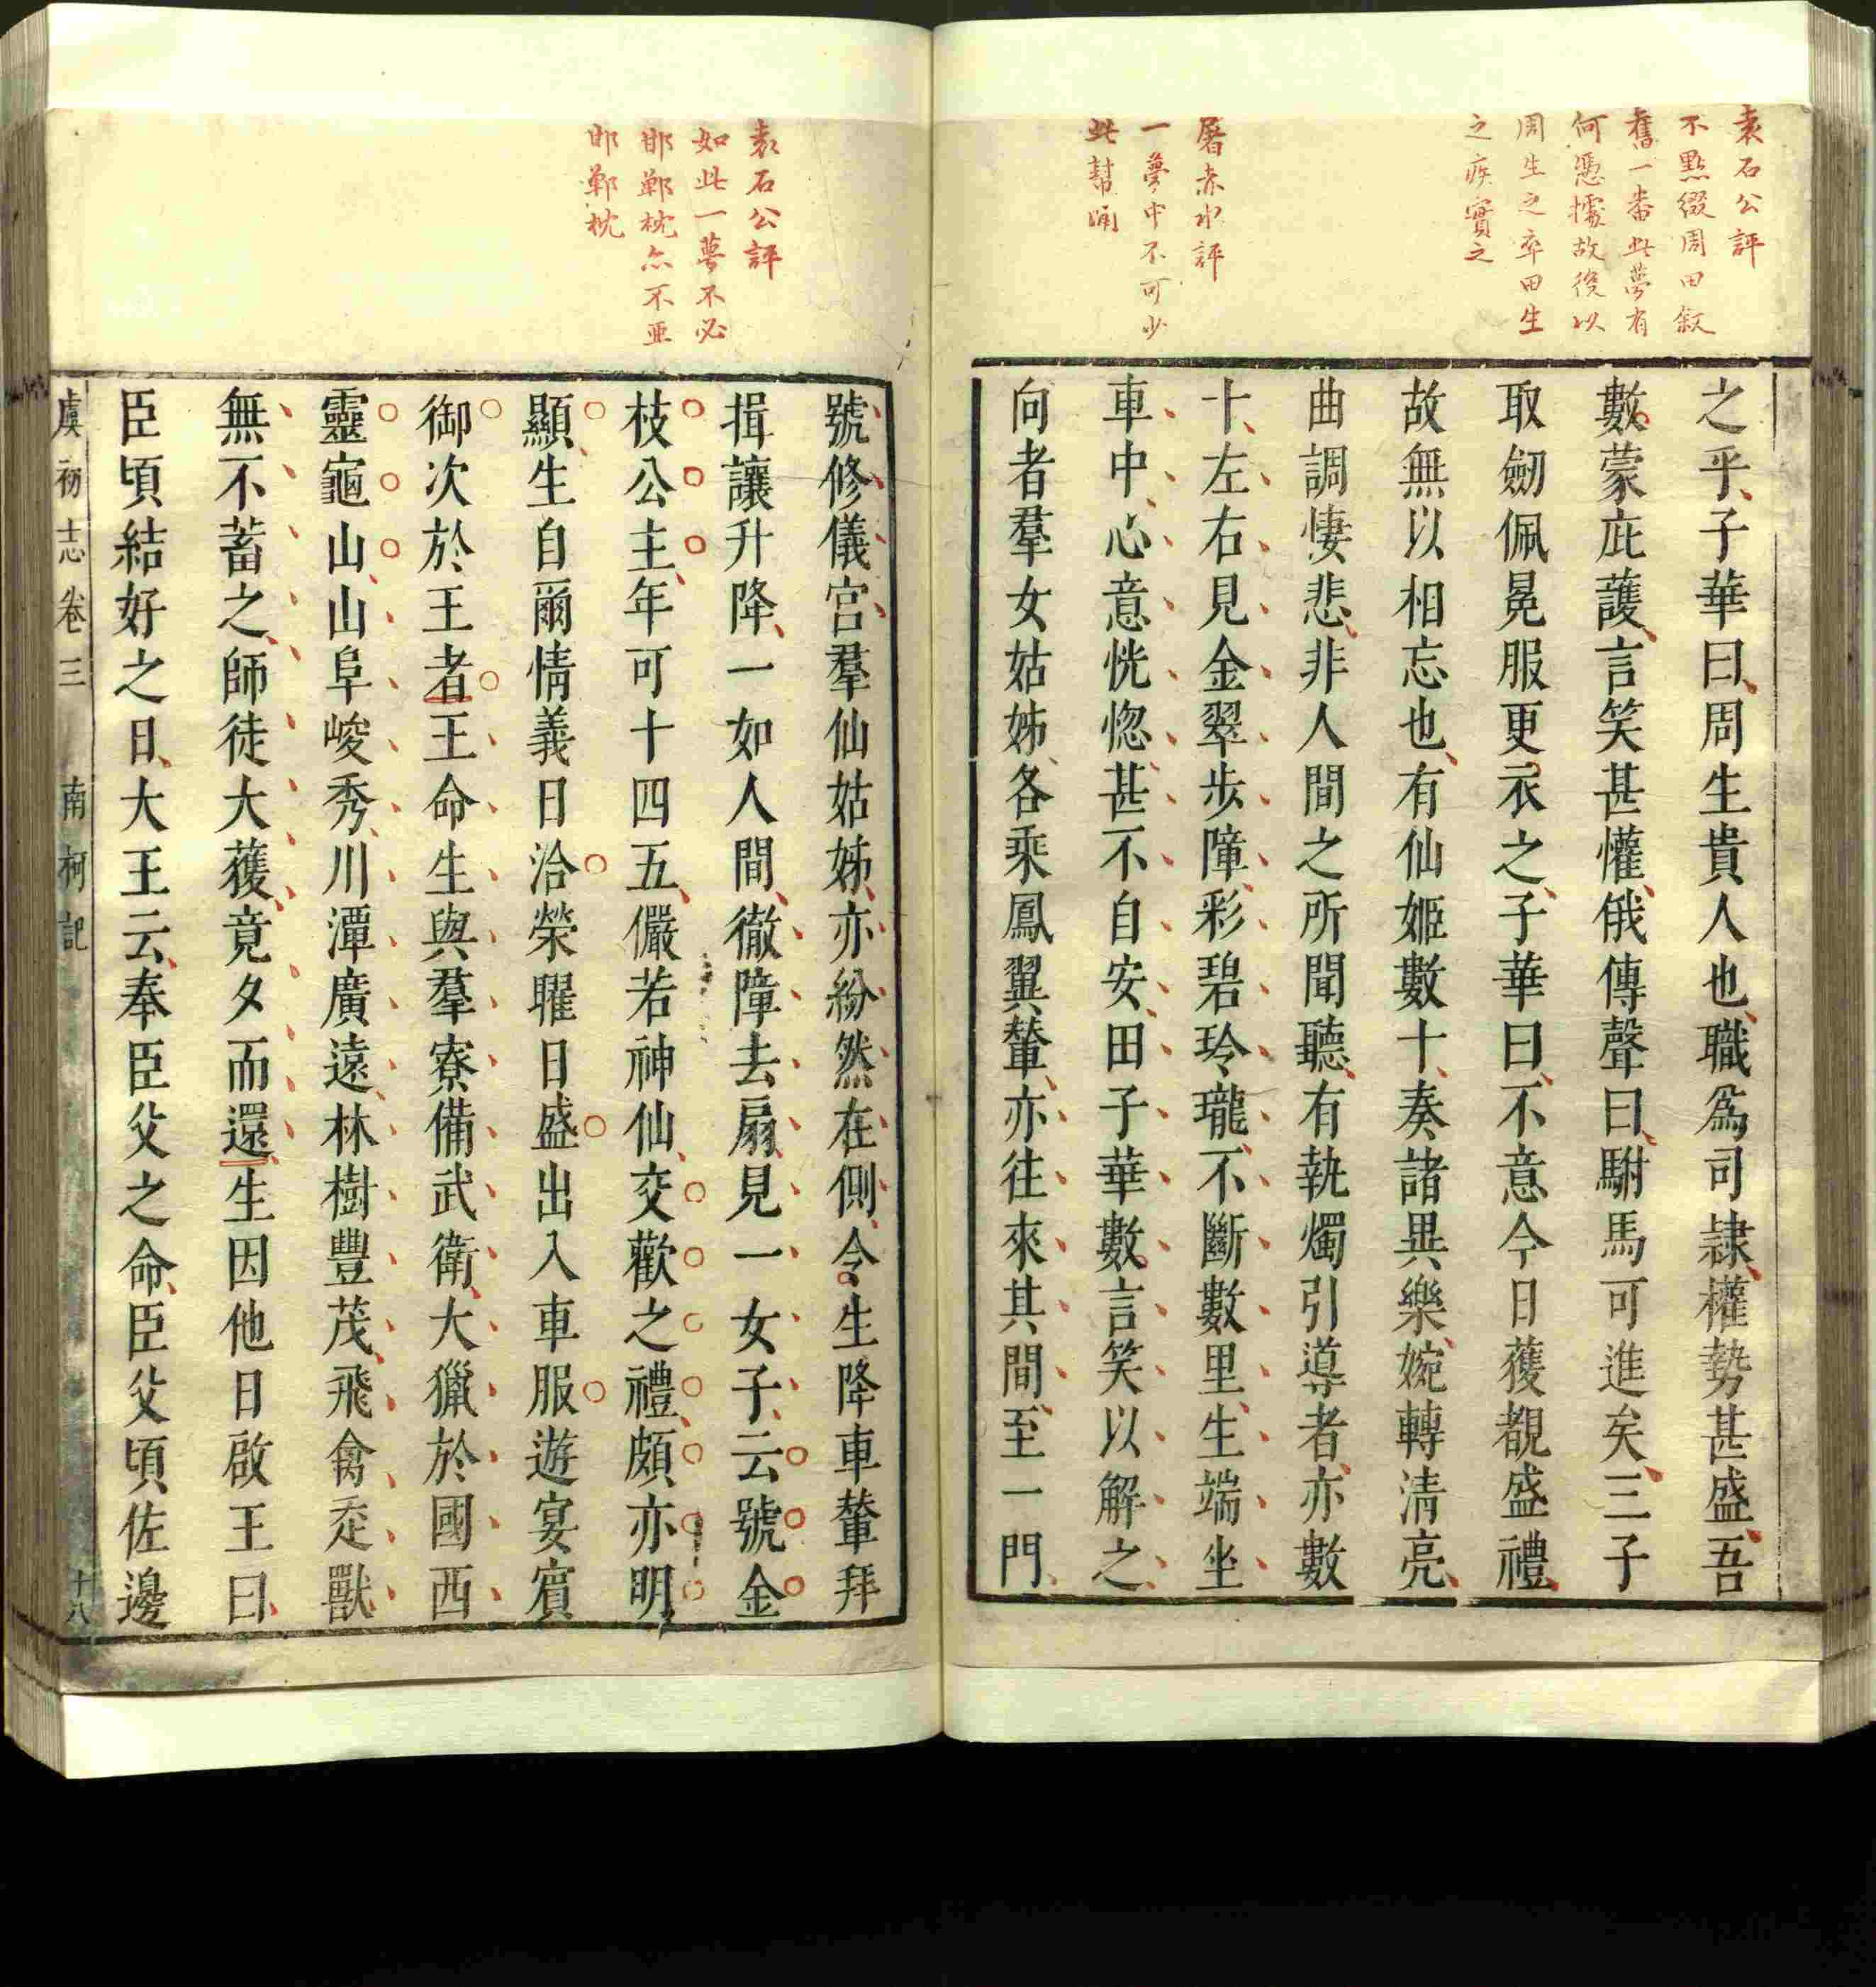 袁石公評
不點綴周田叙
舊一番此夢有
何憑據故後以
周生之卒田生
之疾實之
屠赤水評
一夢中不可少
此幫
之乎子華曰周生貴人也職爲司隷權勢甚盛吾
數蒙庇護言笑甚懽俄傳聲曰駙馬可進矣三子
取劒佩冕服更衣之子華曰不意今日獲覩盛禮
故無以相忘也有仙姬數十奏諸異樂婉轉清亮
曲調悽悲非人間之所聞聽有執燭引導者亦數
十左右見金翠步障彩碧玲瓏不斷數里生端坐
車中心意恍惚甚不自安田子華數言笑以解之
向者羣女姑姊各乘鳳翼輦亦往來其間至一門
袁石公評
如此一夢不必
邯鄲枕亦不亞
邯鄲枕
號修儀宮羣仙姑姊亦紛然在側令生降車輦拜
揖讓升降一如人間徹障去扇見一女子云號金
枝公主年可十四五儼若神仙交歡之禮頗亦明
顯生自爾情義日洽榮曜日盛出入車服遊宴賓
御次於王者王命生與羣寮備武衛大獵於國西
靈龜山山阜峻秀川澤廣遠林樹豐茂飛禽走獸
無不蓄之師徒大獲竟夕而還生因他日啟王曰
臣頃結好之日大王云奉臣父之命臣父頃佐邊
虞初志卷三　南柯記　十八